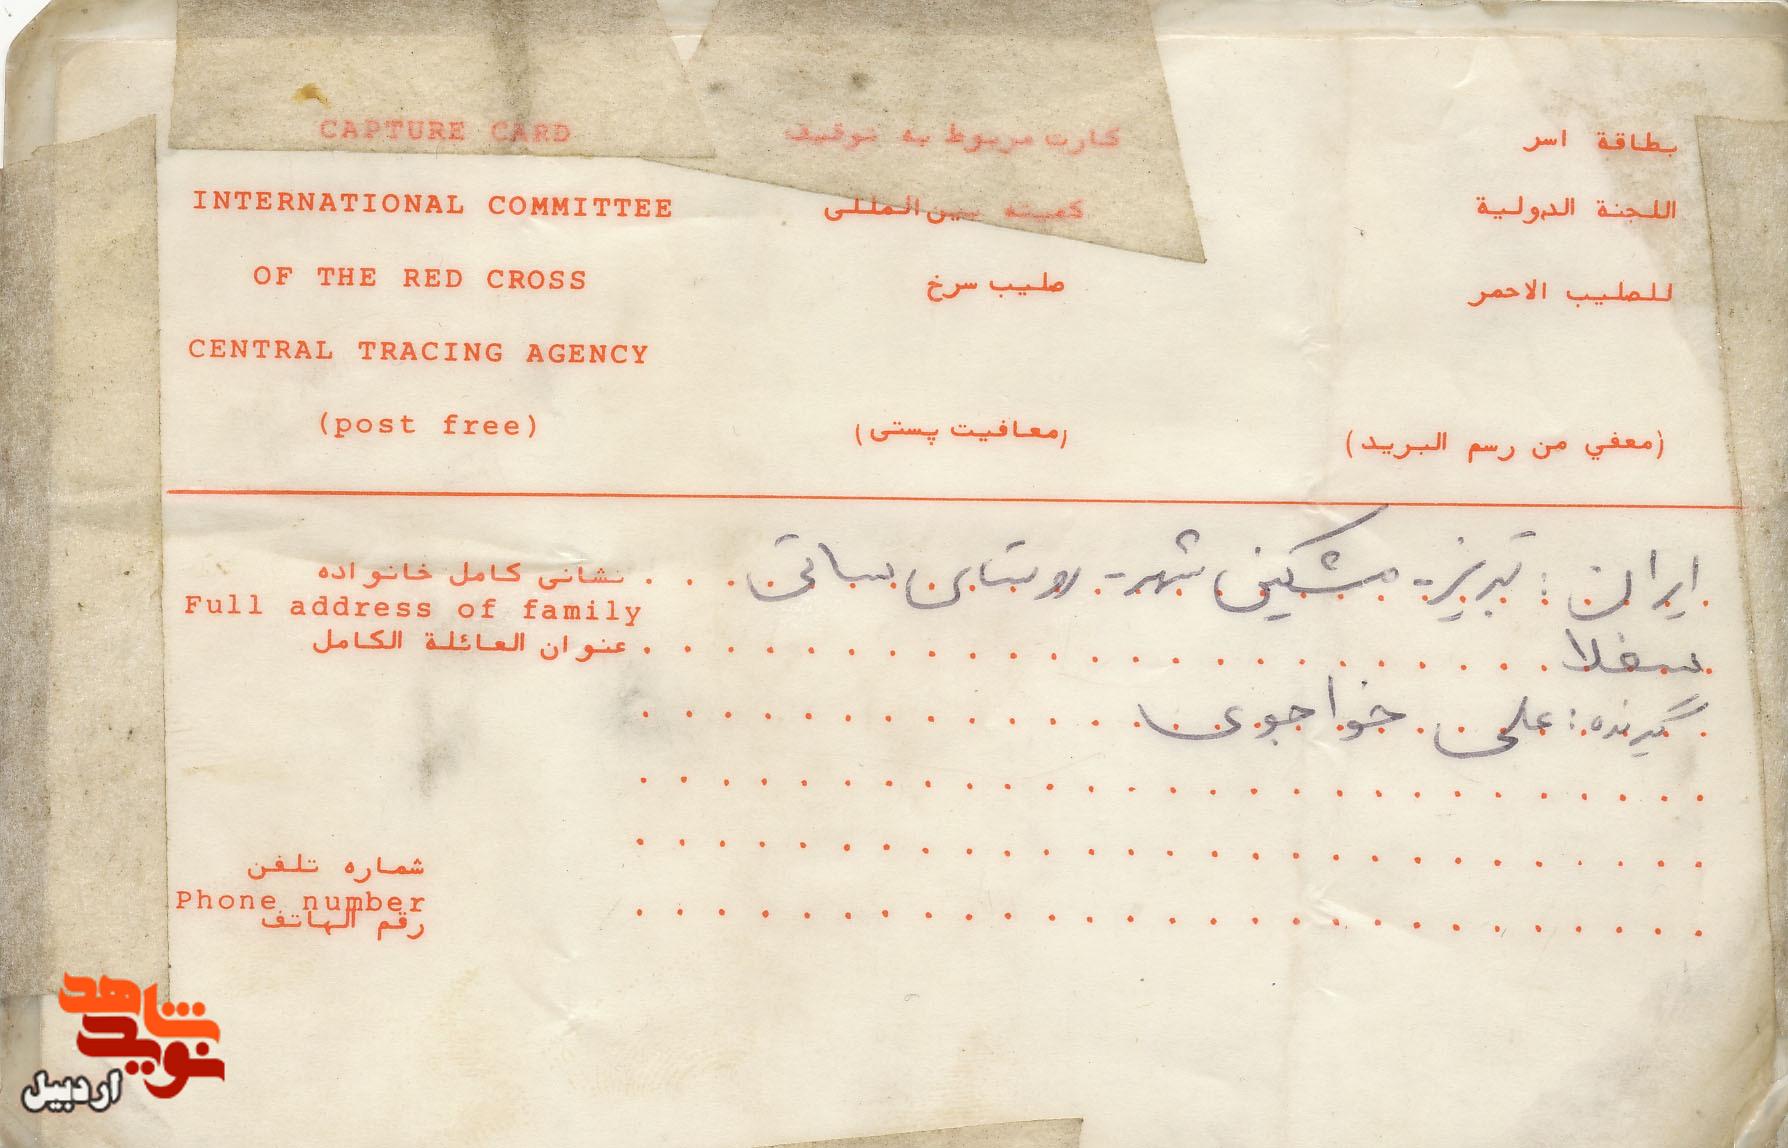 CAPTURE CARD
کارت مربوط به توقیف
بطاقة اسر
INTERNATIONAL COMMITTEE
کمیته بین المللی
اللجنة الدولية
OF THE RED CROSS
صلیب سرخ
للصليب الاحمر
CENTRAL TRACING AGENCY
(post free)
(معافیت پستی)
(معفي من رسم البريد)
نشانی کامل خانواده
Full address of family
عنوان العائلة الكامل
ایران : تبریز - مشکین شهر - روستای بساتی
سفلا
گیرنده : علی خواجوی
شماره تلفن
Phone number
رقم الهاتف
شاهد
نوید
اردبیل